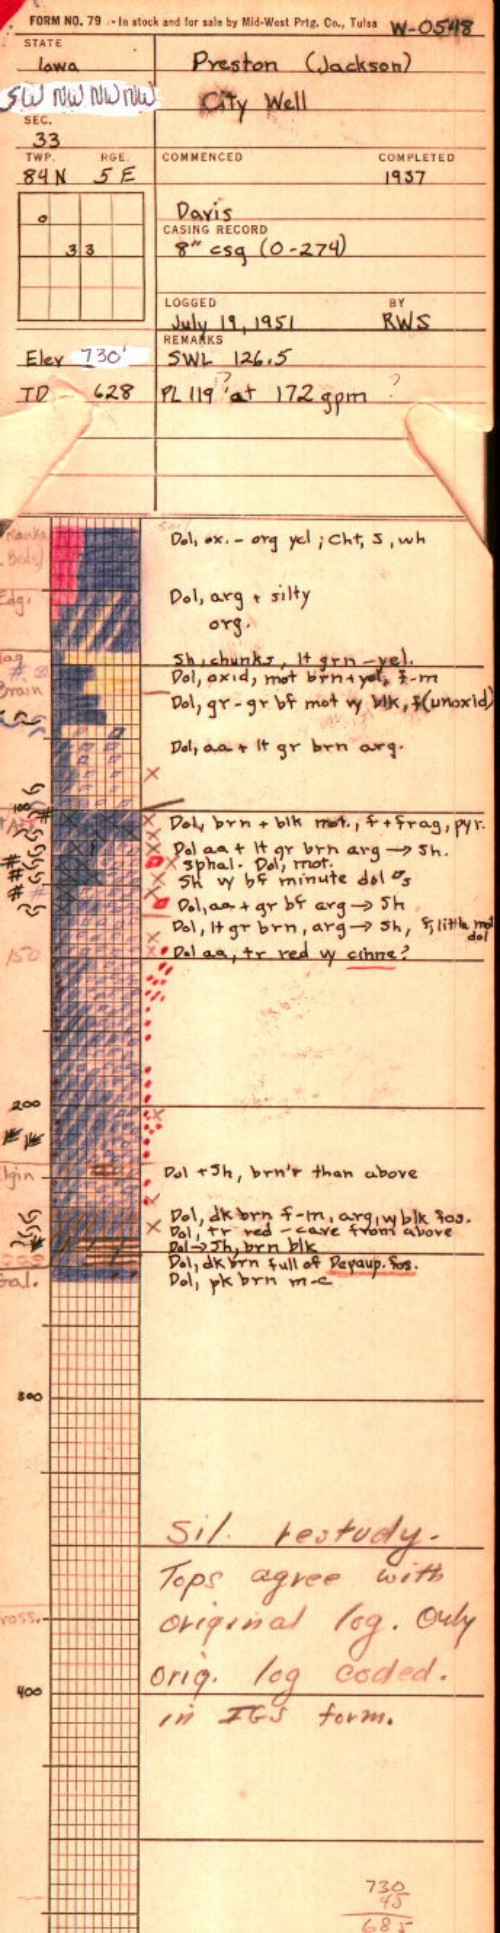 FORM NO. 79 - In stock and for sale by Mid-West Prtg. Co., Tulsa W-0548
STATE
Iowa Preston (Jackson)
SW NW NW NW City Well
SEC.
33
TWP. RGE. COMMENCED COMPLETED
84 N 5 E 1937
Davis
CASING RECORD
33 8" csg (0-274)
LOGGED BY
July 19, 1951 RWS
REMARKS
Elev 730' SWL 126.5
TD - 628 PL 119 ? at 172 gpm ?
Dol, ox. - org yel ; Cht, s, wh
Beds)
Edg. Dol, arg + silty
org.
Sh, chunks, lt grn - yel.
Dol, oxid, mot brn + yel, f-m
Brain
Dol, gr - gr bf mot w blk, f (unoxid)
Dol, aa + lt gr brn arg.
Dol, brn + blk mot., f + frag, pyr.
Dol aa + lt gr brn arg → Sh.
sphal. Dol, mot.
Sh w bf minute dol
Dol, aa + gr bf arg → Sh
Dol, lt gr brn, arg → Sh, f, little mot
dol
150 Dol aa, tr red w cinne?
200
lgin Dol + Sh, brn'r than above
Dol, dk brn f-m, arg, w blk fos.
Dol, tr red - cave from above
Dol → Sh, brn blk
Dol, dk brn full of Depaup. fos.
Gal. Dol, pk brn m-c
300
Sil. restudy.
Tops agree with
ross. original log. Only
orig. log coded.
400
in IGS form.
730
45
685